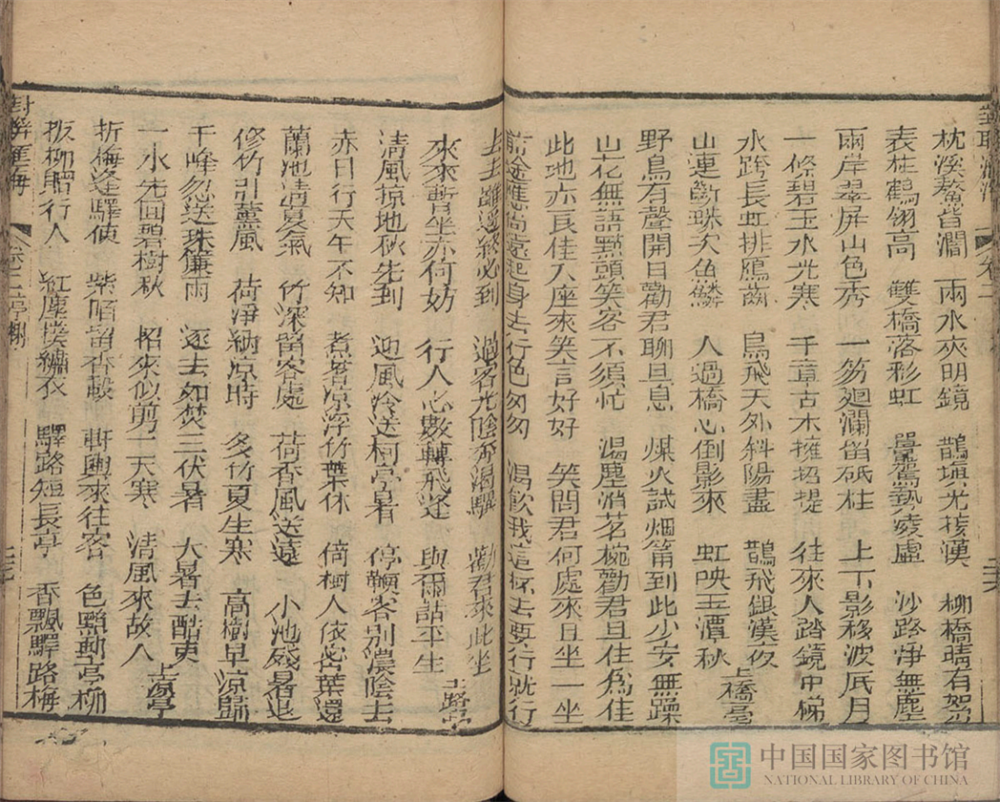 對聯匯海 卷二
枕溪鰲背澗 兩水夾明鏡 鵲填光接漢 柳橋晴有絮
表柱鶴翎高 雙橋落彩虹 鼍駕勢凌虛 沙路淨無塵
兩岸翠屏山色秀 一笏迴瀾留砥柱 上下影移波底月
一條碧玉水光寒 千章古木擁招提 往來人踏鏡中梯
水跨長虹排鴈齒 鳥飛天外斜陽盡 鵲飛銀漢夜 上橋亭
山連斷珠次魚鱗 人過橋心倒影來 虹映玉潭秋
野鳥有聲開口勸君聊且息 煤火試烟筩到此少安無躁
山花無語點頭笑客不須忙 渴塵消茗椀勸君且住為佳
此地亦良佳入座來笑言好好 笑問君何處來日坐一坐
前途應尚遠起身去行色匆匆 渴飲我這杯去要行就行
去去雖遙終必到 過客光陰奔渴驥 勸君來此坐
來來暫坐亦何妨 行人心數轉飛蓬 與爾話平生 上路亭
清風掠地秋先到 迎風冷送柯亭暑 停驂客別濃陰去
赤日行天午不知 煮茗涼浮竹葉休 倚樹人依必葉還
蘭池清夏氣 竹深留客處 荷香風送遠 小池殘暑退
修竹引薰風 荷淨納涼時 多竹夏生寒 高樹早涼歸
千峰忽送珠簾雨 逐去如焚三伏暑 大暑去酷吏
一水先回碧樹秋 招來似剪一天寒 清風來故人 上涼亭
折梅逢驛使 紫陌留香轂 軒輿來往客 色點郵亭柳
扳柳贈行人 紅塵撲繡衣 驛路短長亭 香飄驛路梅
對聯匯海 卷二亭榭
中国国家图书馆
NATIONAL LIBRARY OF CHINA